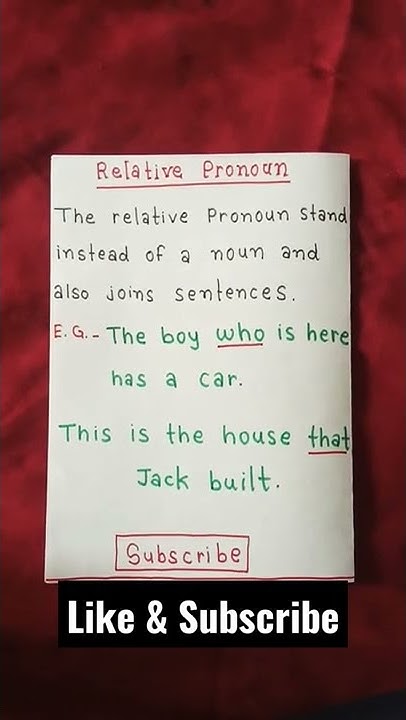 Relative Pronoun
The relative Pronoun stand
instead of a noun and
also joins sentences.
E.G.- The boy who is here
has a car.
This is the house that
Jack built.
Subscribe
Like & Subscribe